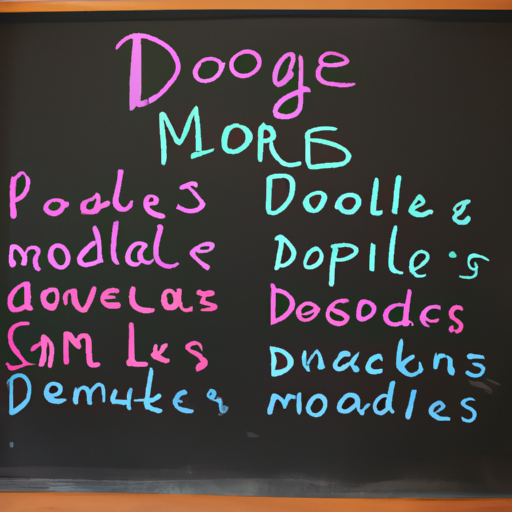 Dooge
MORS
Poales
modlale
aovelas
SnM Lks
Demutkes
Doolle s
Dopile·s
Desodcs
Dnackns
moadles